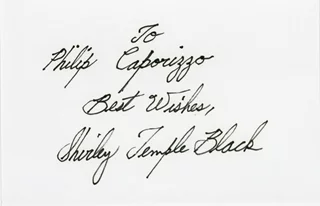 To
Philip Caporizzo
Best Wishes,
Shirley Temple Black